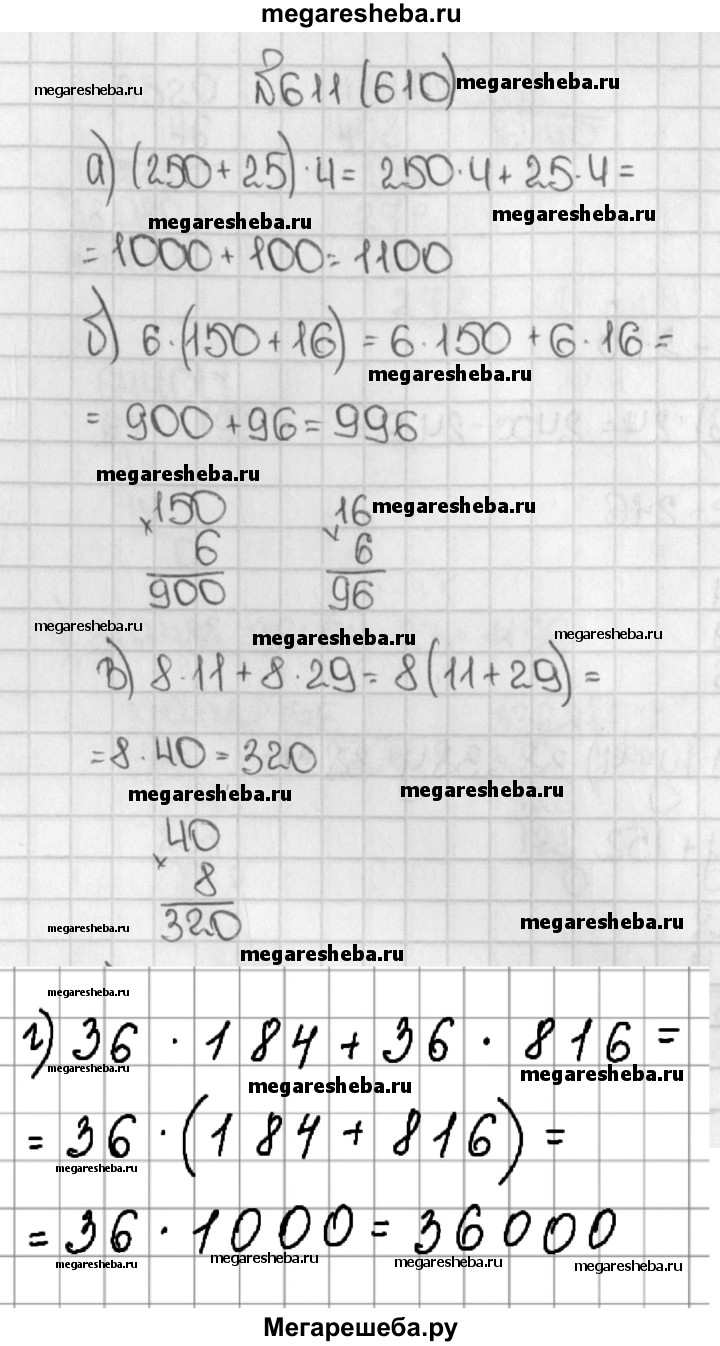 megaresheba.ru
megaresheba.ru №611 (610) megaresheba.ru
а) (250+25)·4= 250·4+25·4=
megaresheba.ru megaresheba.ru
=1000+100=1100
б) 6·(150+16)=6·150+6·16=
megaresheba.ru
= 900+96=996
megaresheba.ru
×150 16 megaresheba.ru
6 × 6
900 96
megaresheba.ru megaresheba.ru megaresheba.ru
в) 8·11+8·29=8(11+29)=
=8·40=320
megaresheba.ru megaresheba.ru
40
× 8
320
megaresheba.ru megaresheba.ru
megaresheba.ru
megaresheba.ru
г) 36·184+36·816=
megaresheba.ru megaresheba.ru megaresheba.ru
=36·(184+816)=
megaresheba.ru
=36·1000=36000
megaresheba.ru megaresheba.ru megaresheba.ru megaresheba.ru
Мегарешеба.ру